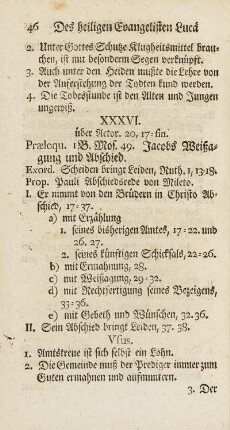 46 Des heiligen Evangelisten Lucä
2. Unter Gottes Schutze Klugheitsmittel brau-
chen, ist mit besonderm Segen verknüpft.
3. Auch unter den Heiden mußte die Lehre von
der Auferstehung der Todten kund werden.
4. Die Todesstunde ist den Alten und Jungen
ungewiß.
XXXVI.
über Actor. 20, 17-fin.
Præloqu. 1 B. Mos. 49. Jacobs Weißa-
gung und Abschied.
Exord. Scheiden bringt Leiden, Ruth. 1, 13-18.
Prop. Pauli Abschiedsrede von Mileto.
I. Er nimmt von den Brüdern in Christo Ab-
schied, 17-37.
a) mit Erzählung
1. seines bisherigen Amtes, 17-22. und
26. 27.
2. seines künftigen Schicksals, 22-26.
b) mit Ermahnung, 28.
c) mit Weißagung, 29-32.
d) mit Rechtfertigung seines Bezeigens,
33-36.
e) mit Gebeth und Wünschen, 32. 36.
II. Sein Abschied bringt Leiden, 37. 38.
Vsus.
1. Amtstreue ist sich selbst ein Lohn.
2. Die Gemeinde muß der Prediger immer zum
Guten ermahnen und aufmuntern.
3. Der